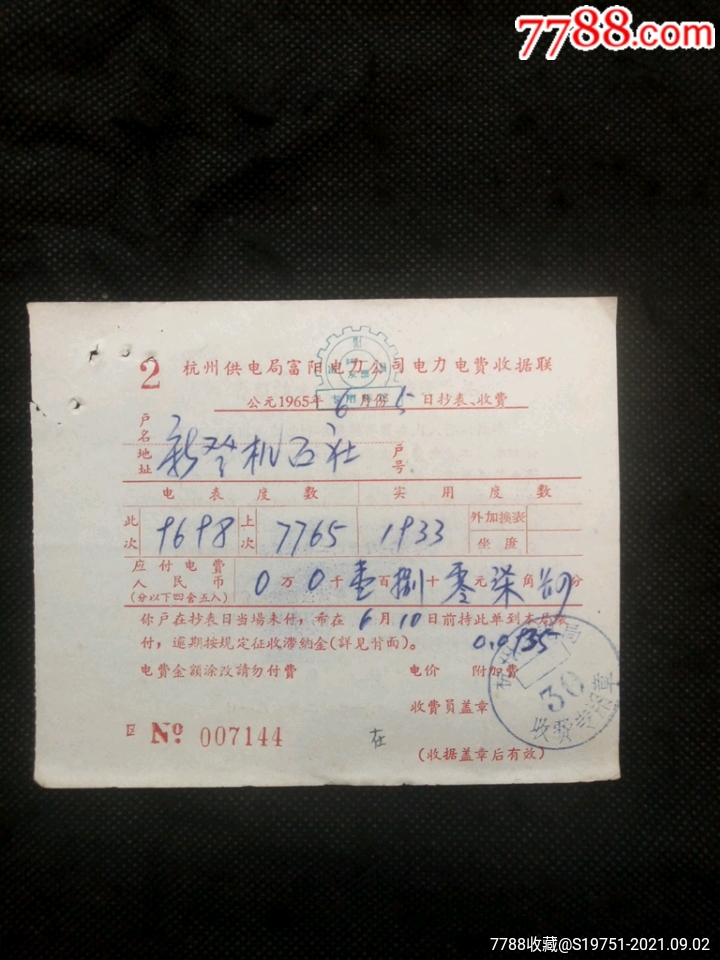 7788.com
2 杭州供电局富阳电力公司电力电费收据联
公元1965年6月份5日抄表、收费
户名
地址
新登机面社
户号
电表度数 实用度数
此次 9698 上次 7765 1933 外加換表
坐度
应付电费
人民币
(分以下四舍五入)
0万0千壹百捌十零元柒角
分
你户在抄表日当場未付,希在6月10日前持此单到本局
付,逾期按規定征收滞納金(詳見背面)。
0.0935
电費金額涂改請勿付費 电价 附加費
收費員盖章
30
收费专用章
区 No 007144
在
(收据盖章后有效)
7788收藏@S19751-2021.09.02